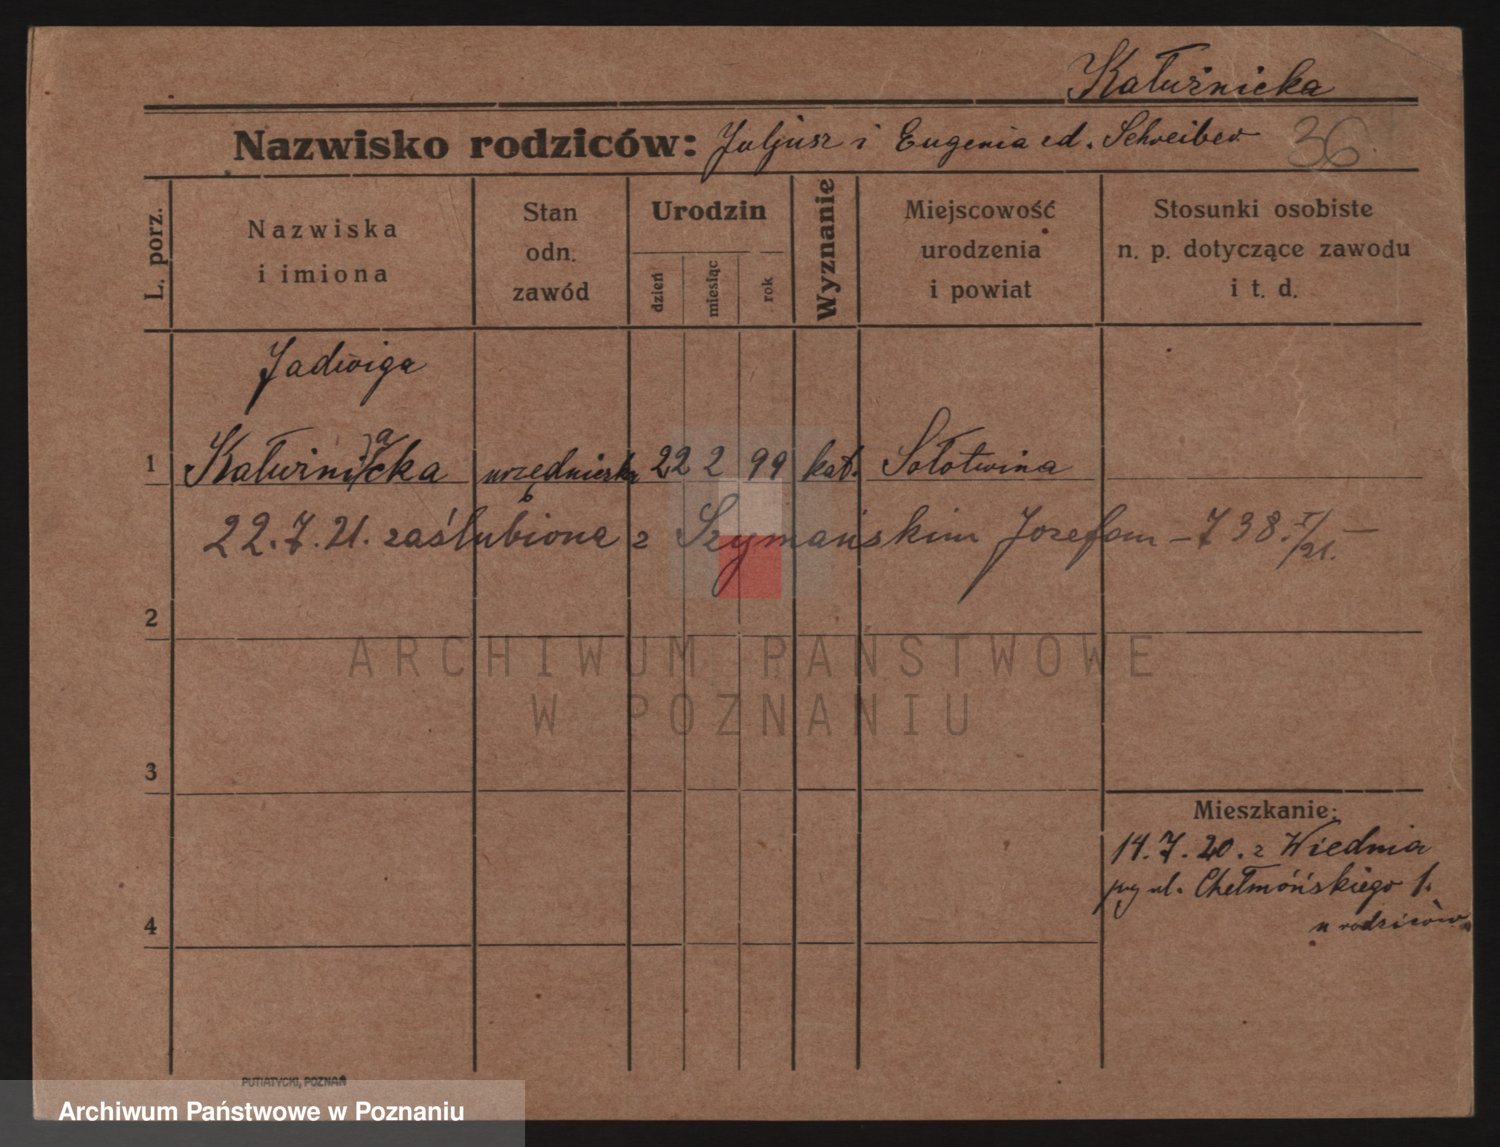 Kałużnicka
Nazwisko rodziców: Juljusz i Eugenia cd. Schreiber 36
L. porz.
Nazwiska
i imiona
Stan
odn.
zawód
Urodzin
dzień
miesiąc
rok
Wyznanie
Miejscowość
urodzenia
i powiat
Stosunki osobiste
n. p. dotyczące zawodu
i t. d.
Jadwiga
1 Kałużniacka urzędniczka 22 2 99 kat. Sołotwina
22.7.21. zaślubiona z Szymańskim Jozefem – 738. I/21. –
2
ARCHIWUM PAŃSTWOWE
W POZNANIU
3
Mieszkanie:
14.7.20. z Wiednia
ul. Chełmóńskiego 1.
u rodziców
4
PUTIATYCKI, POZNAŃ
Archiwum Państwowe w Poznaniu